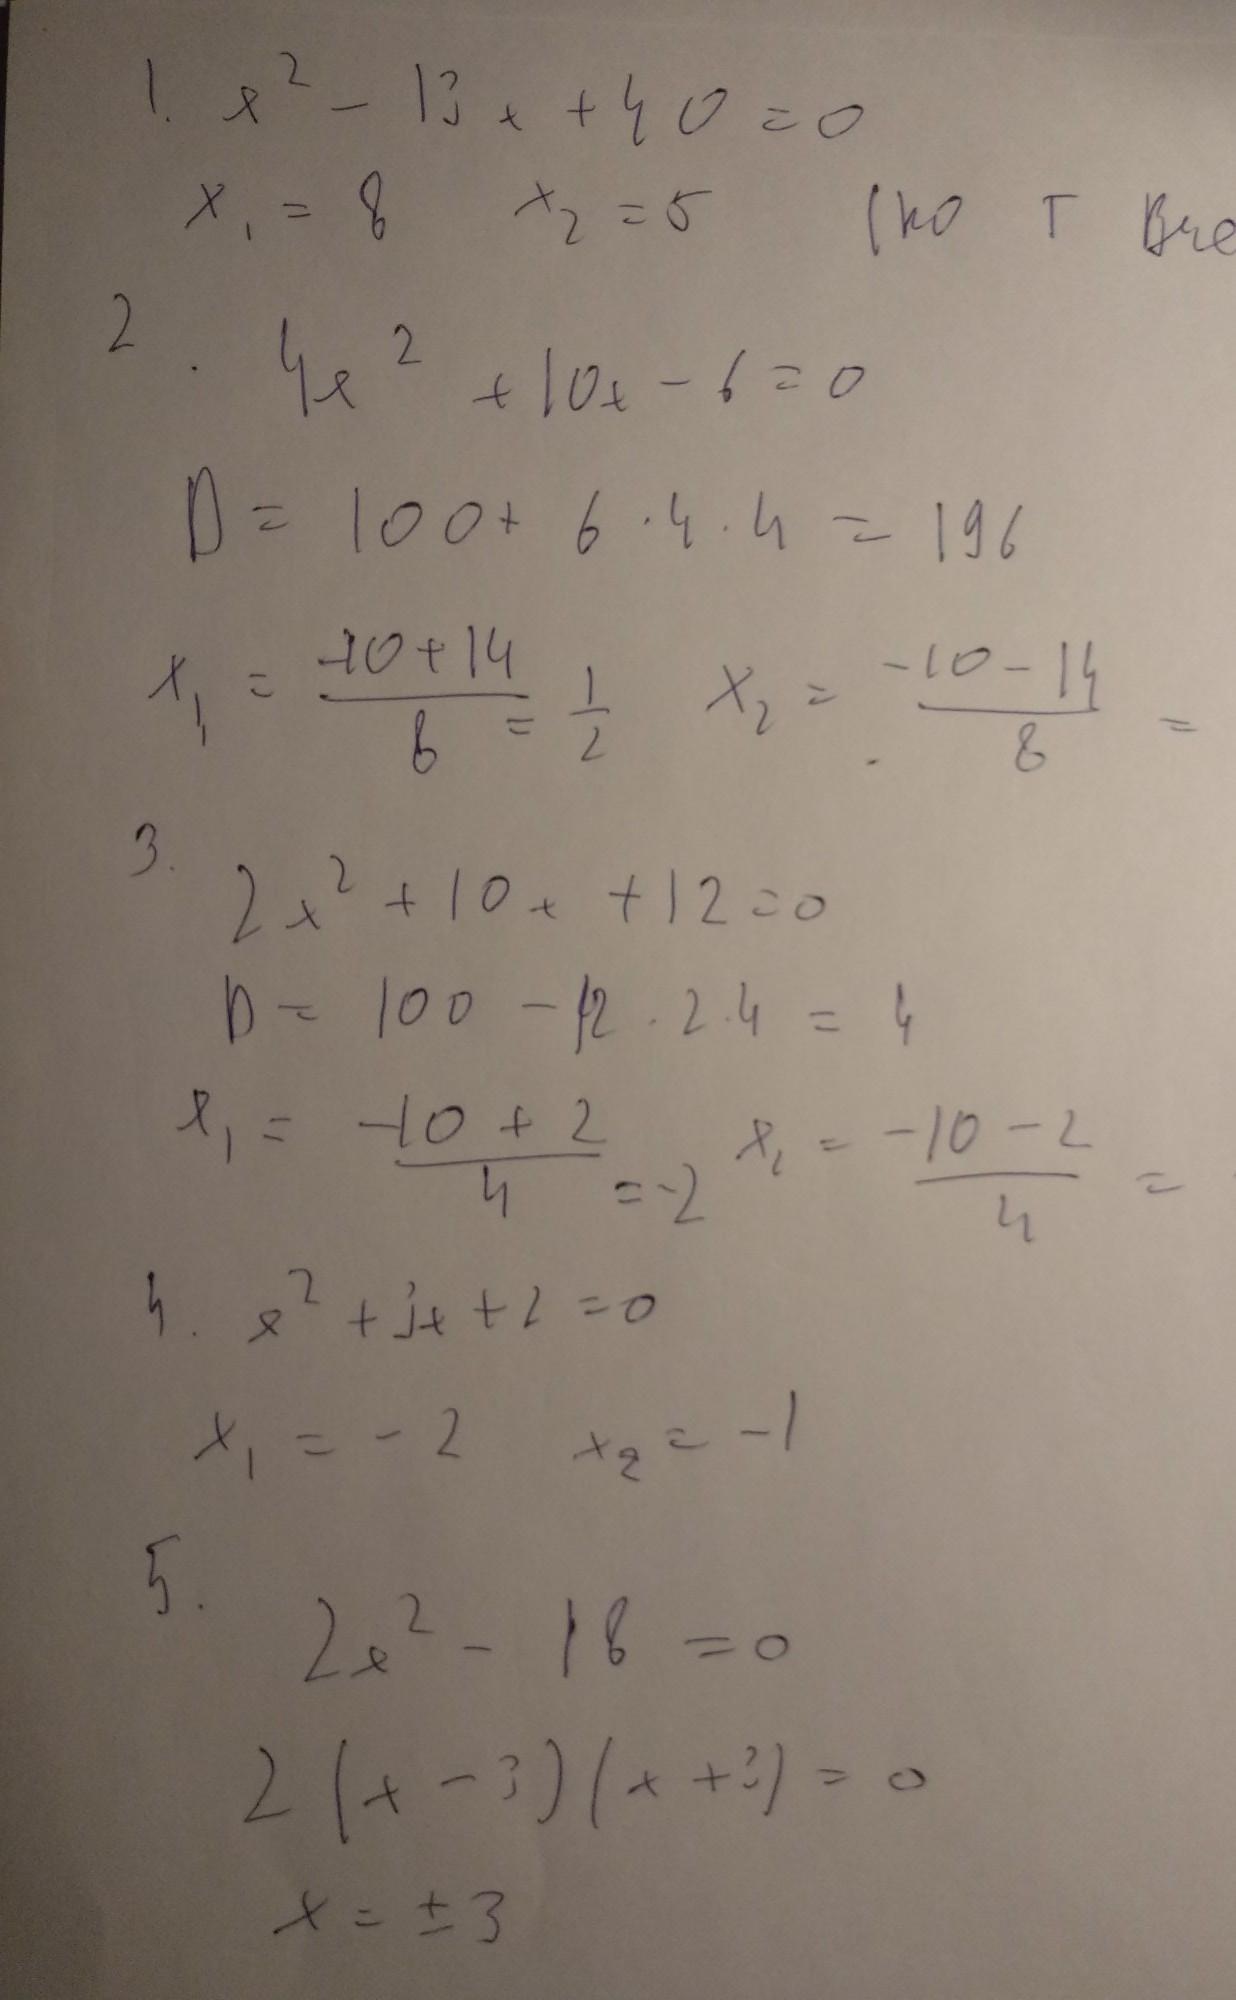 1. x² - 13x + 40 = 0
x₁ = 8 x₂ = 5 (по т Вие
2. 4x² + 10x - 6 = 0
D = 100 + 6 · 4 · 4 = 196
x₁ = (-10 + 14)/8 = 1/2 x₂ = (-10 - 14)/8 =
3. 2x² + 10x + 12 = 0
D = 100 - 12 · 2 · 4 = 4
x₁ = (-10 + 2)/4 = -2 x₂ = (-10 - 2)/4 =
4. x² + 3x + 2 = 0
x₁ = -2 x₂ = -1
5. 2x² - 18 = 0
2(x - 3)(x + 3) = 0
x = ±3